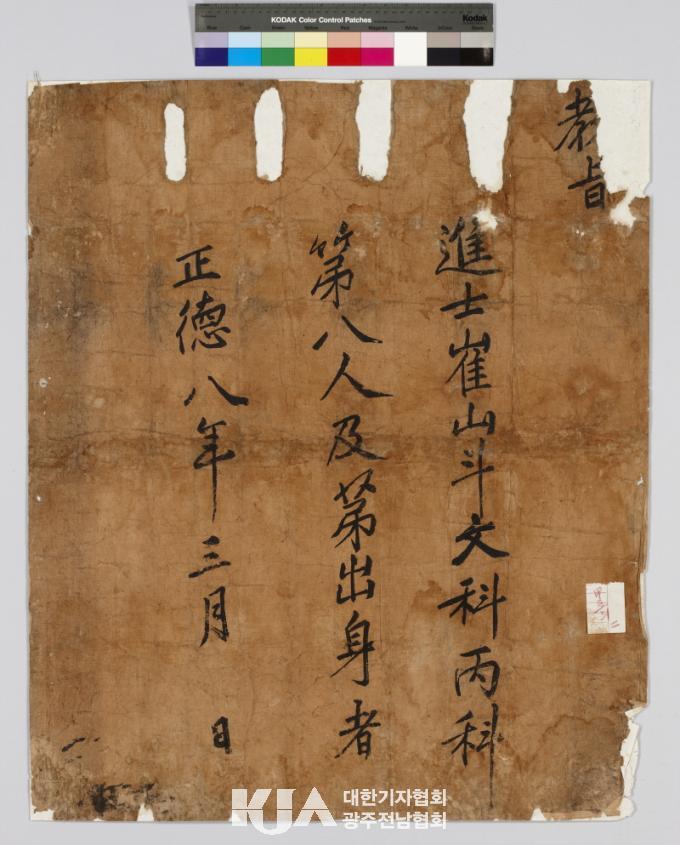 KODAK Color Control Patches
Kodak
敎旨
進士崔山斗文科丙科
第八人及第出身者
正德八年三月 日
KJA 대한기자협회
광주전남협회